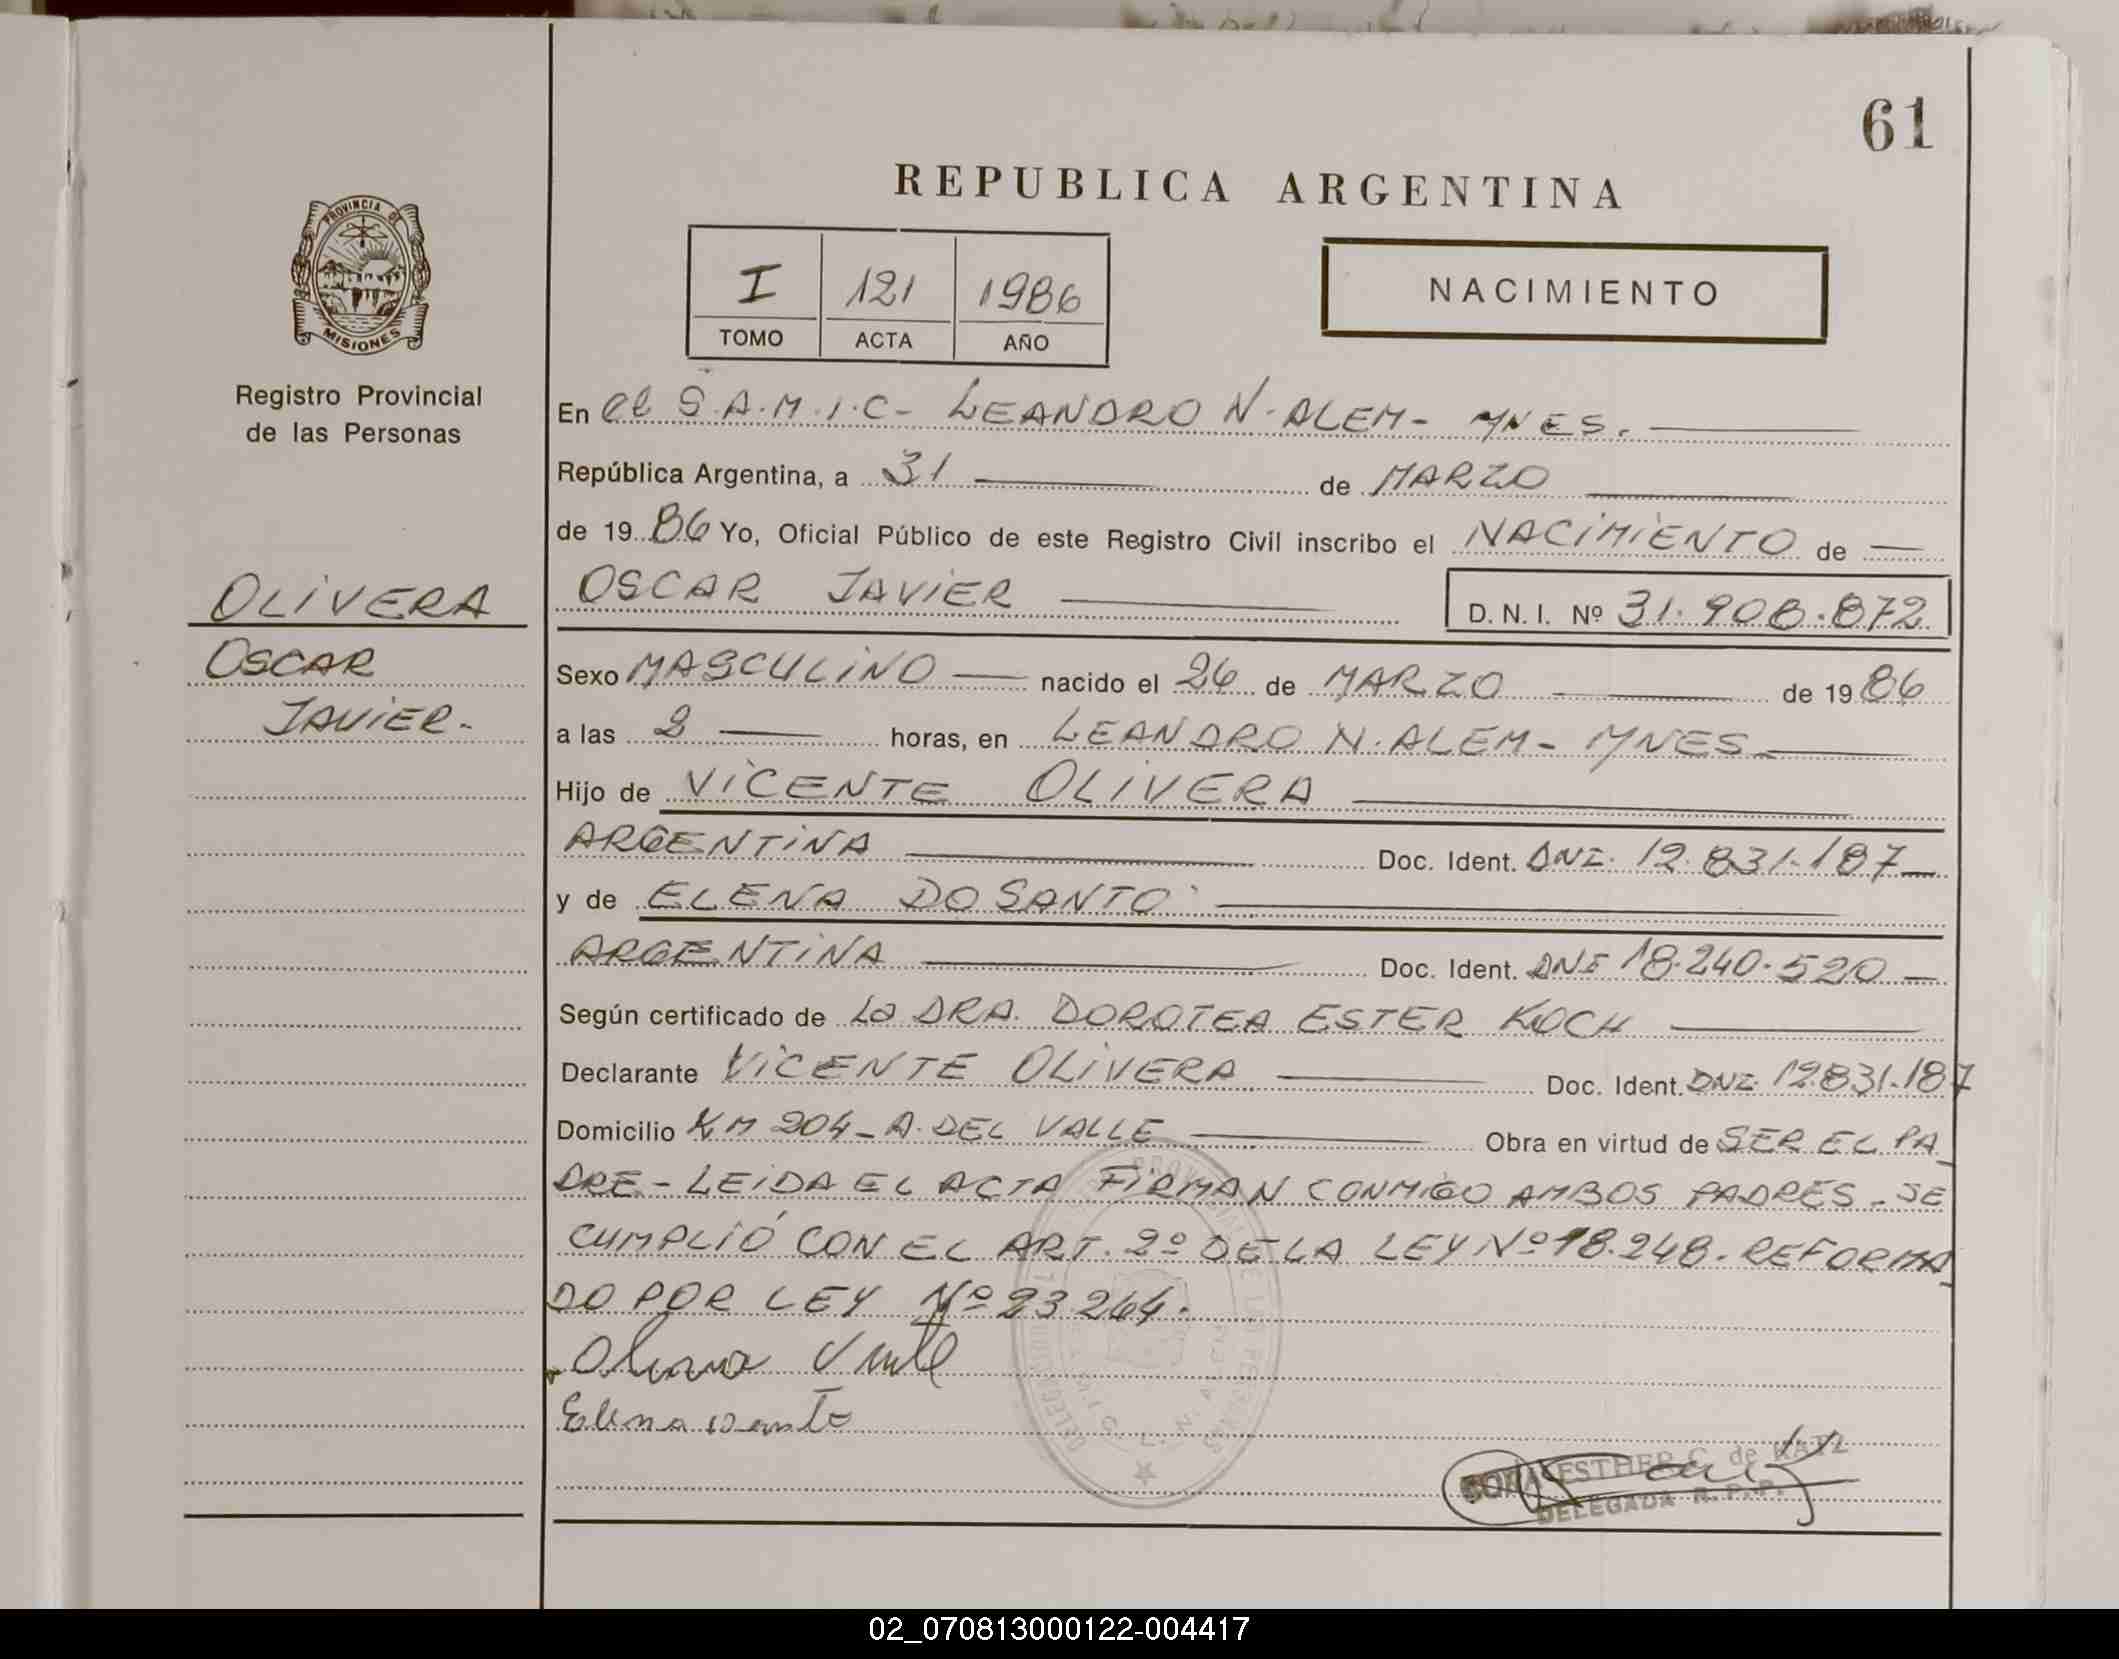 61
REPUBLICA ARGENTINA
PROVINCIA DE
MISIONES
Registro Provincial
de las Personas
I 121 1986
TOMO ACTA AÑO
NACIMIENTO
En el S.A.M.I.C- LEANDRO N. ALEM- MNES.
República Argentina, a 31 de MARZO
de 1986 Yo, Oficial Público de este Registro Civil inscribo el NACIMIENTO de
OLIVERA
OSCAR JAVIER D. N. I. Nº 31.908.872
OSCAR
JAVIER.
Sexo MASCULINO nacido el 26 de MARZO de 1986
a las 2 horas, en LEANDRO N. ALEM- MNES
Hijo de VICENTE OLIVERA
ARGENTINA Doc. Ident. DNI. 12.831.187
y de ELENA DO SANTO
ARGENTINA Doc. Ident. DNI 18.240.520
Según certificado de La DRA. DOROTEA ESTER KOCH
Declarante VICENTE OLIVERA Doc. Ident. DNI. 12.831.187
Domicilio KM 204- A. DEL VALLE Obra en virtud de SER EL PA
DRE- LEIDA EL ACTA FIRMAN CONMIGO AMBOS PADRES- SE
CUMPLIÓ CON EL ART. 2º DE LA LEY Nº 18.248. REFORMA
DO POR LEY Nº 23.264.
Elena
ESTHER C. de KATZ
DELEGADA R.P.P.
02_070813000122-004417